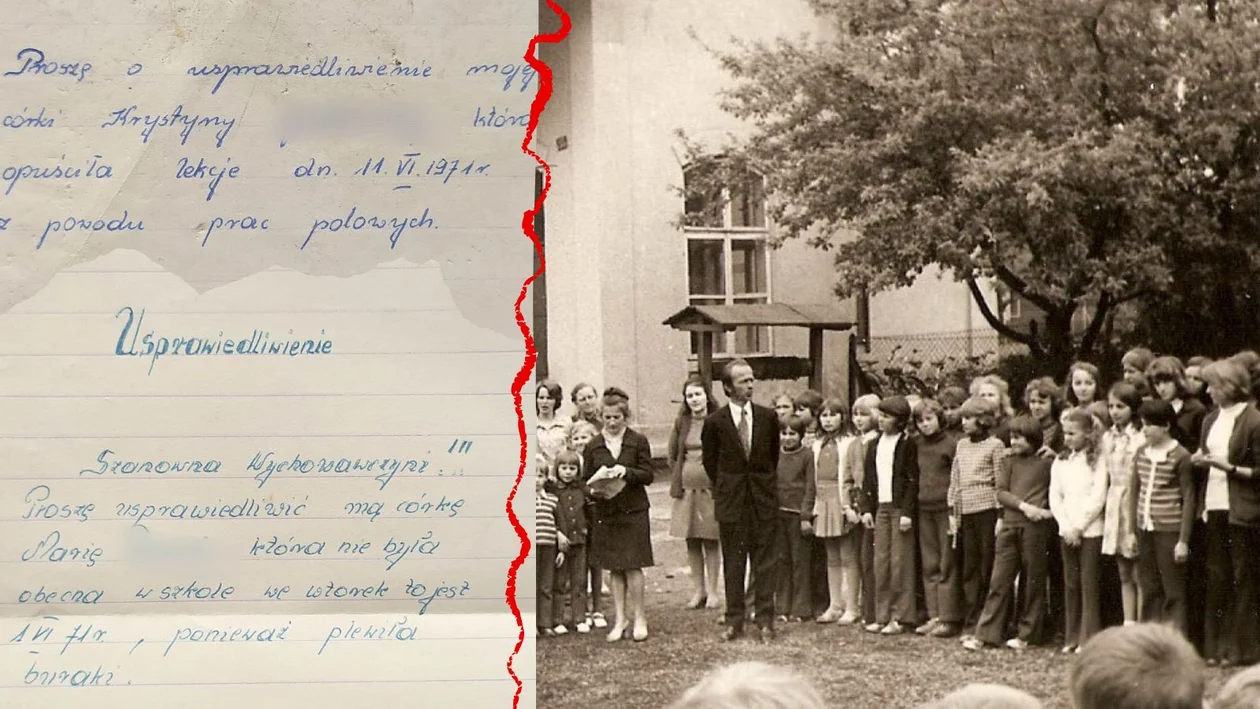 Proszę o usprawiedliwienie mojej
córki Krystyny która
opuściła lekcje dn. 11.VI.1971r.
z powodu prac polowych.
Usprawiedliwienie
Szanowna Wychowawczyni!!!
Proszę usprawiedliwić mą córkę
Marię która nie była
obecna w szkole we wtorek to jest
1 VI 71r, ponieważ plewiła
buraki.